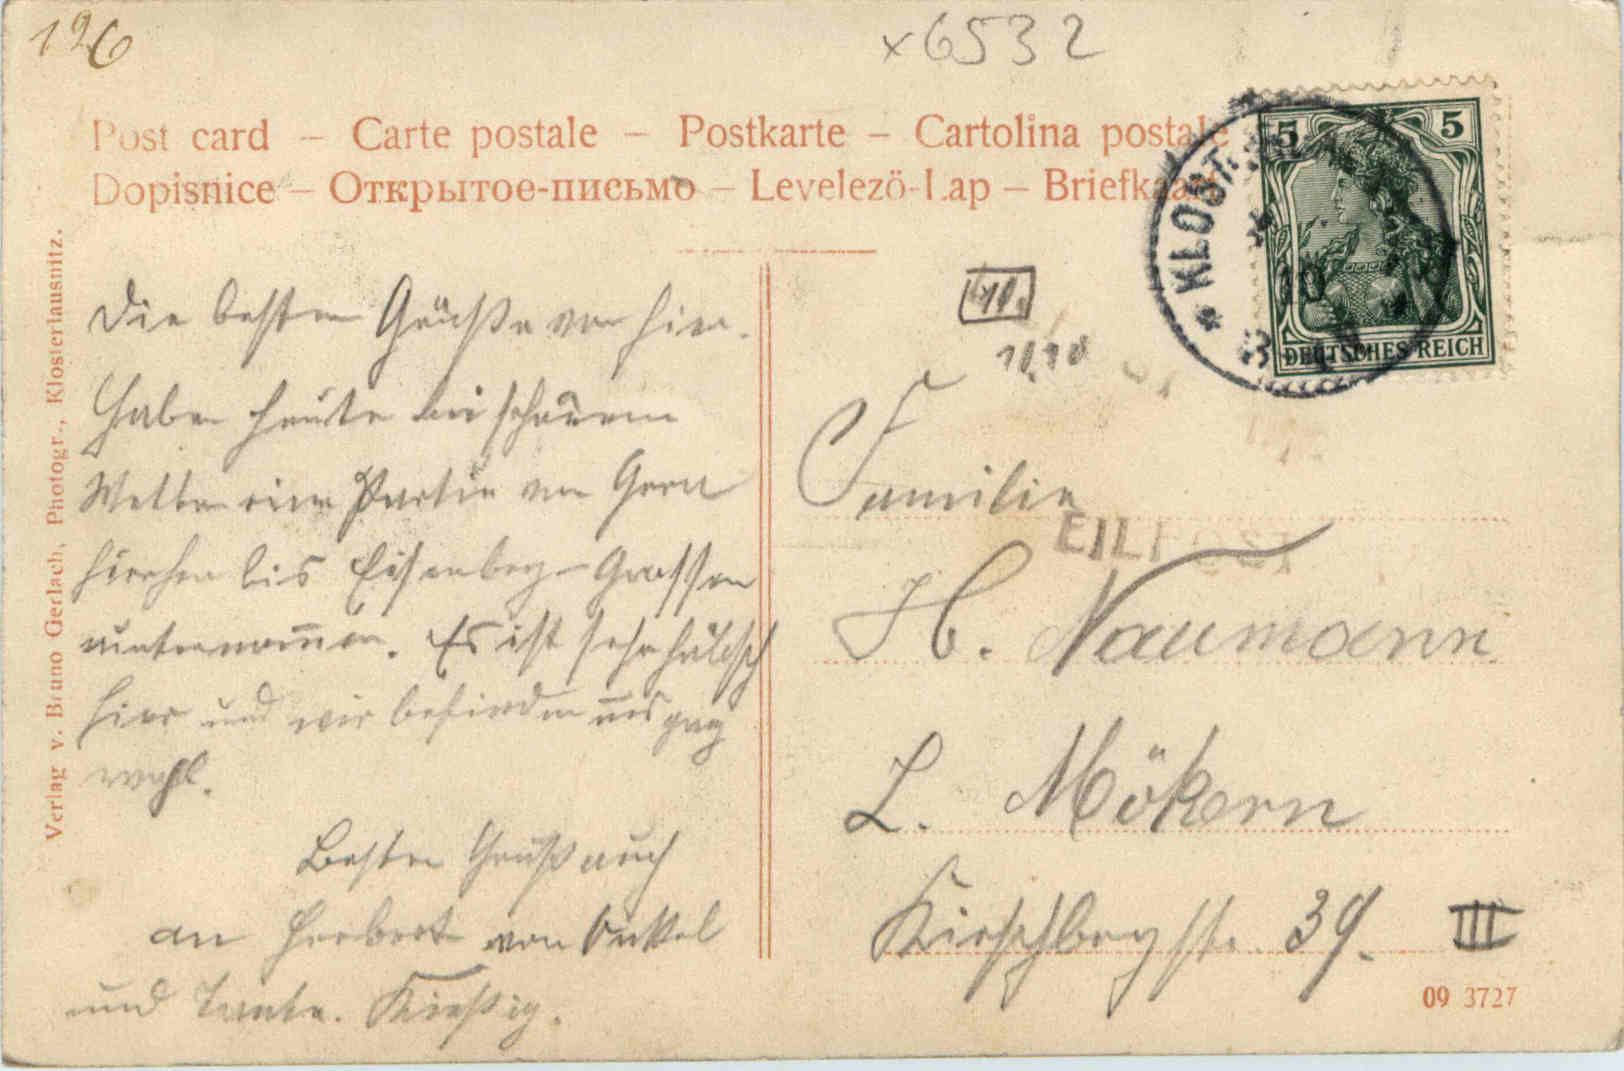 126
x6532
Post card – Carte postale – Postkarte – Cartolina postale
Dopisnice – Открытое-письмо – Levelezö-Lap – Briefkaart
KLOST
5 5
DEUTSCHES REICH
10.
10.10
Verlag v. Bruno Gerlach, Photogr., Klosterlausnitz.
Die besten Grüße von hier.
Haben heute bei schönem
Wetter eine Partie von Gera
bis Eisenberg-Crossen
unternom̅en. Es ist sehr hübsch
hier und wir befinden uns
wohl.
Besten Gruß auch
an Herbert von Onkel
und Tante. Kießig.
Familie
EILPOST
H. Naumann
L. Mökern
Kirschbergstr. 39. III
09 3727